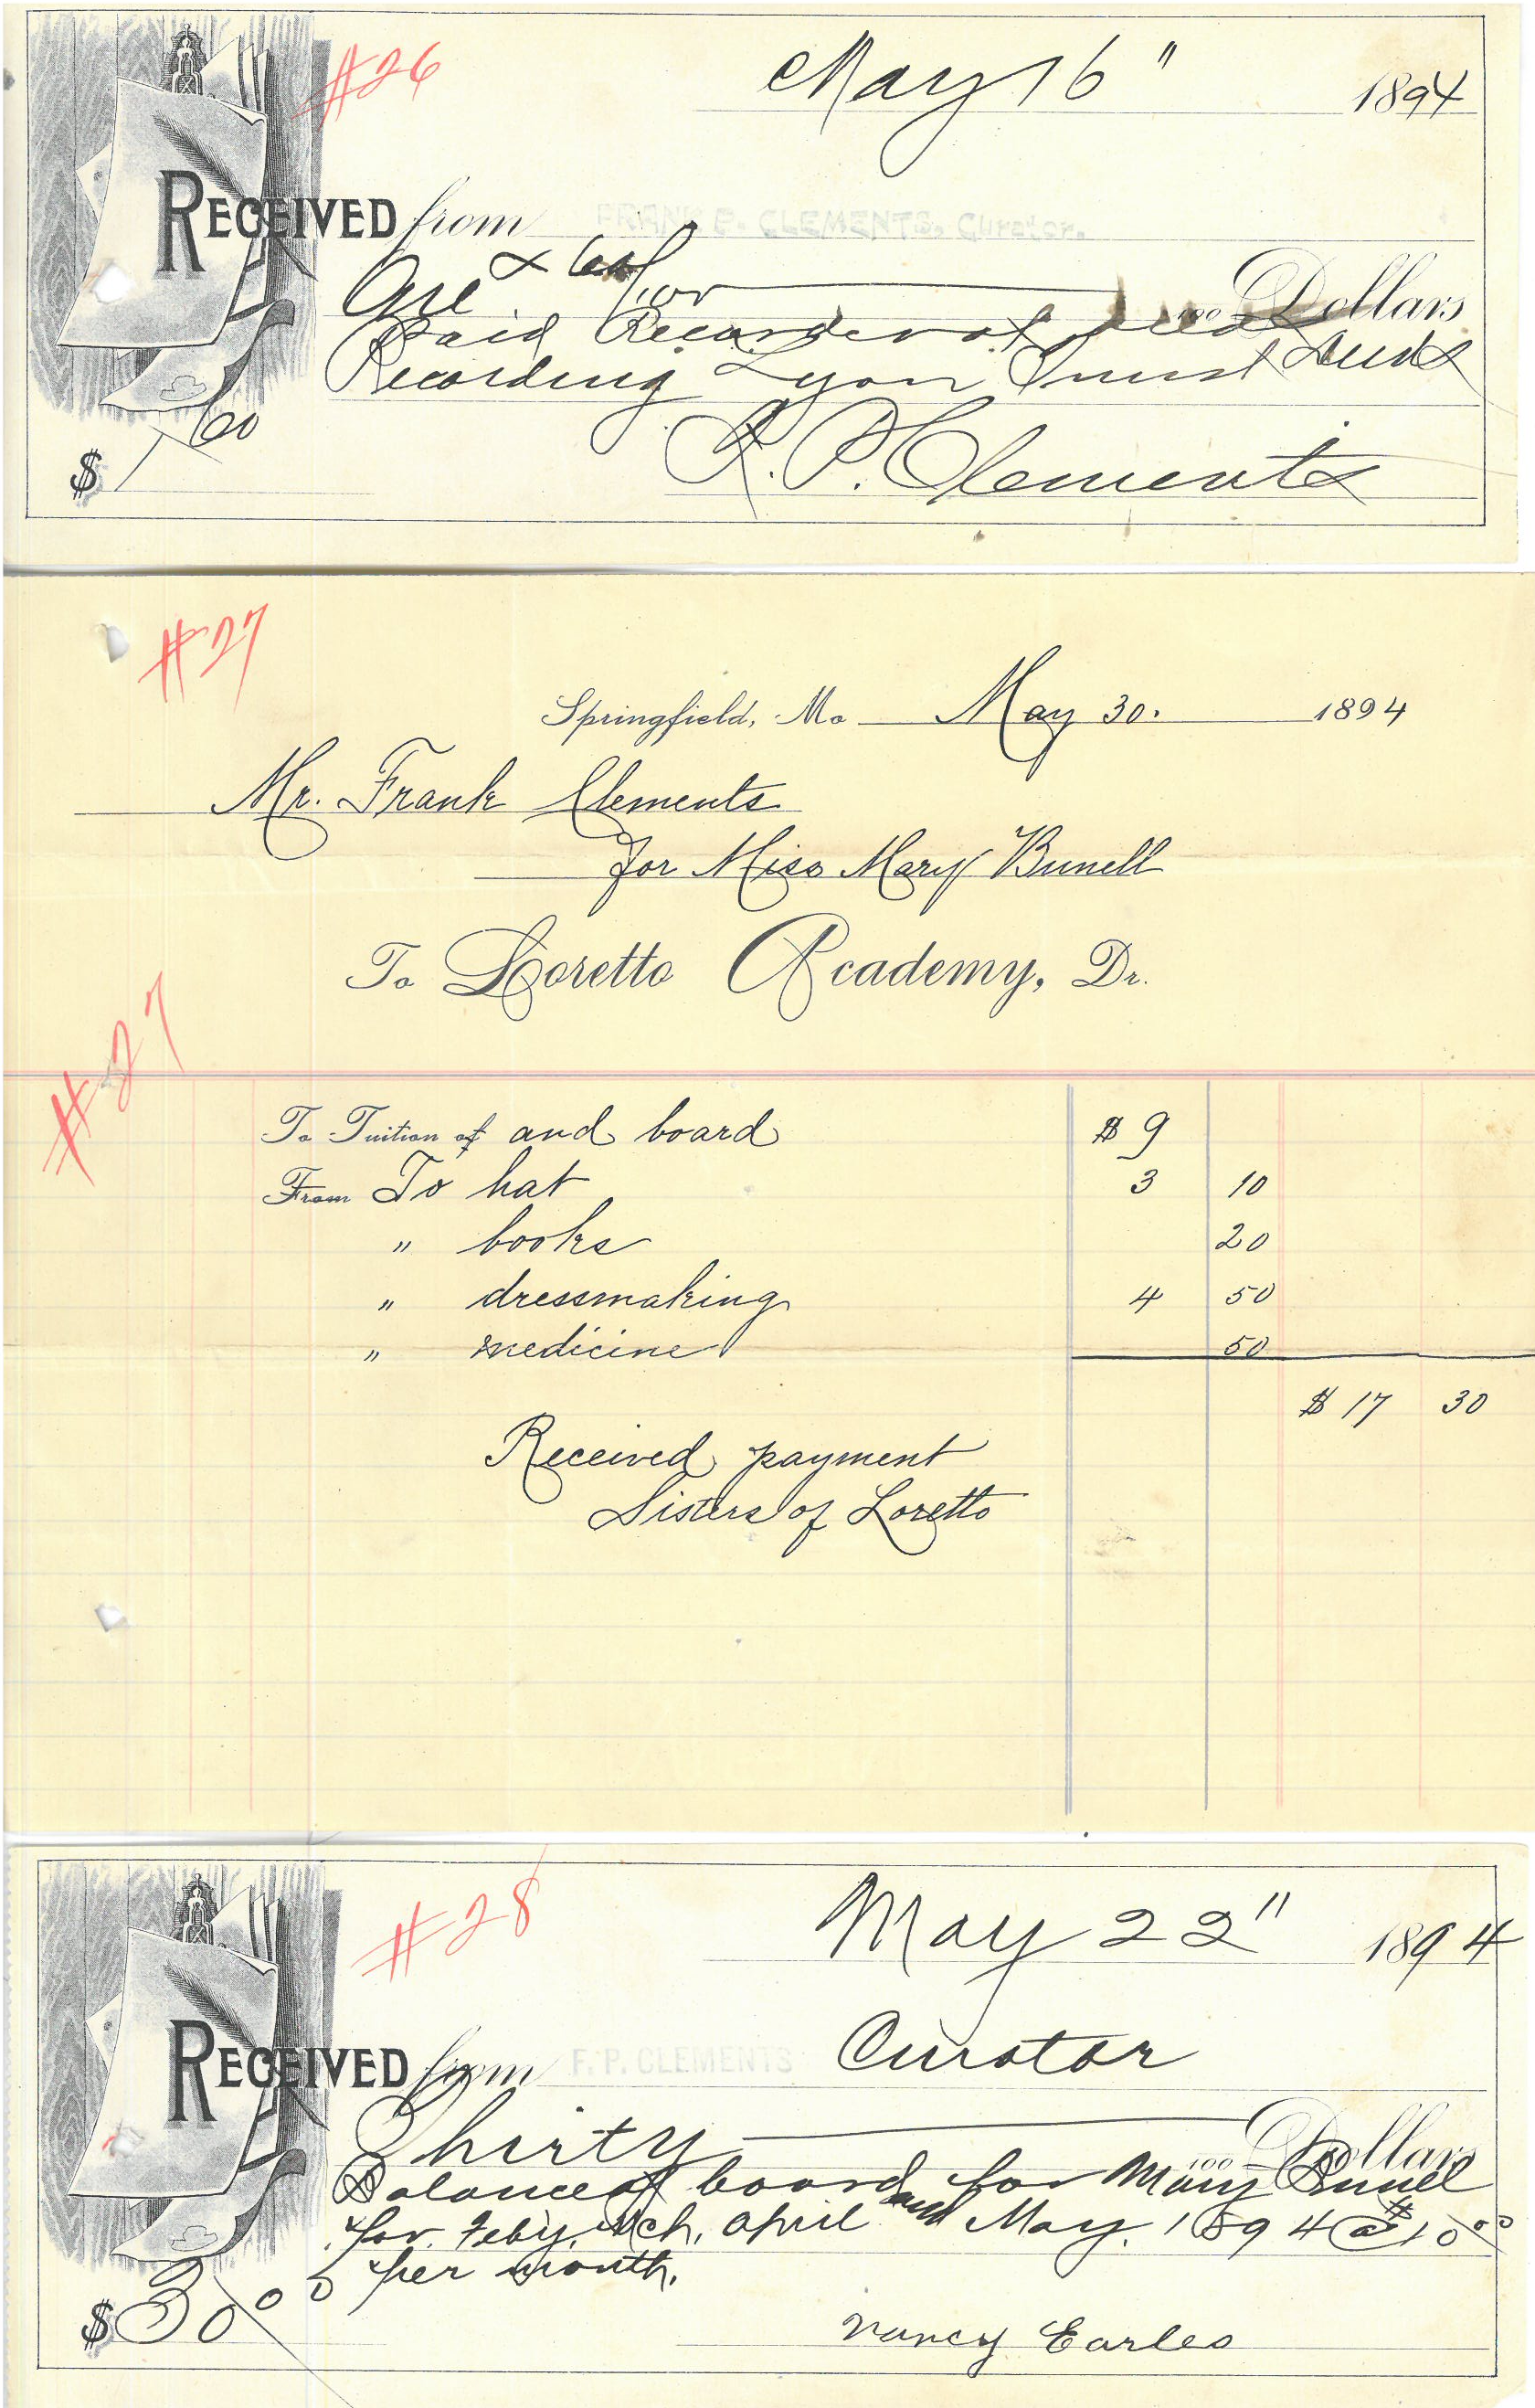 #26
May 16" 1894
RECEIVED from FRANK P. CLEMENTS, Curator.
One & 60/100 for Dollars
Paid Recorder of deeds
Recording Lyon Trust Deeds
$ 1 60
F. P. Clements
#27
Springfield, Mo May 30. 1894
Mr. Frank Clements
for Miss Mary Bunell
To Loretto Academy, Dr.
#27
To Tuition of and board $ 9
From To hat 3 10
" books 20
" dressmaking 4 50
" medicine 50
$ 17 30
Received payment
Sisters of Loretto
#28
May 22" 1894
RECEIVED from F. P. CLEMENTS Curator
Thirty 100 Dollars
Balance of board for Mary Bunnel
for Feby, Mch, April and May, 1894 @ $10 00
per month.
$30 00
Nancy Earles